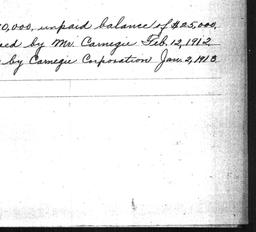 0,000, unpaid balance of $25,000,
sed by Mr. Carnegie Feb. 12, 1912
by Carnegie Corporation Jan. 2, 1913